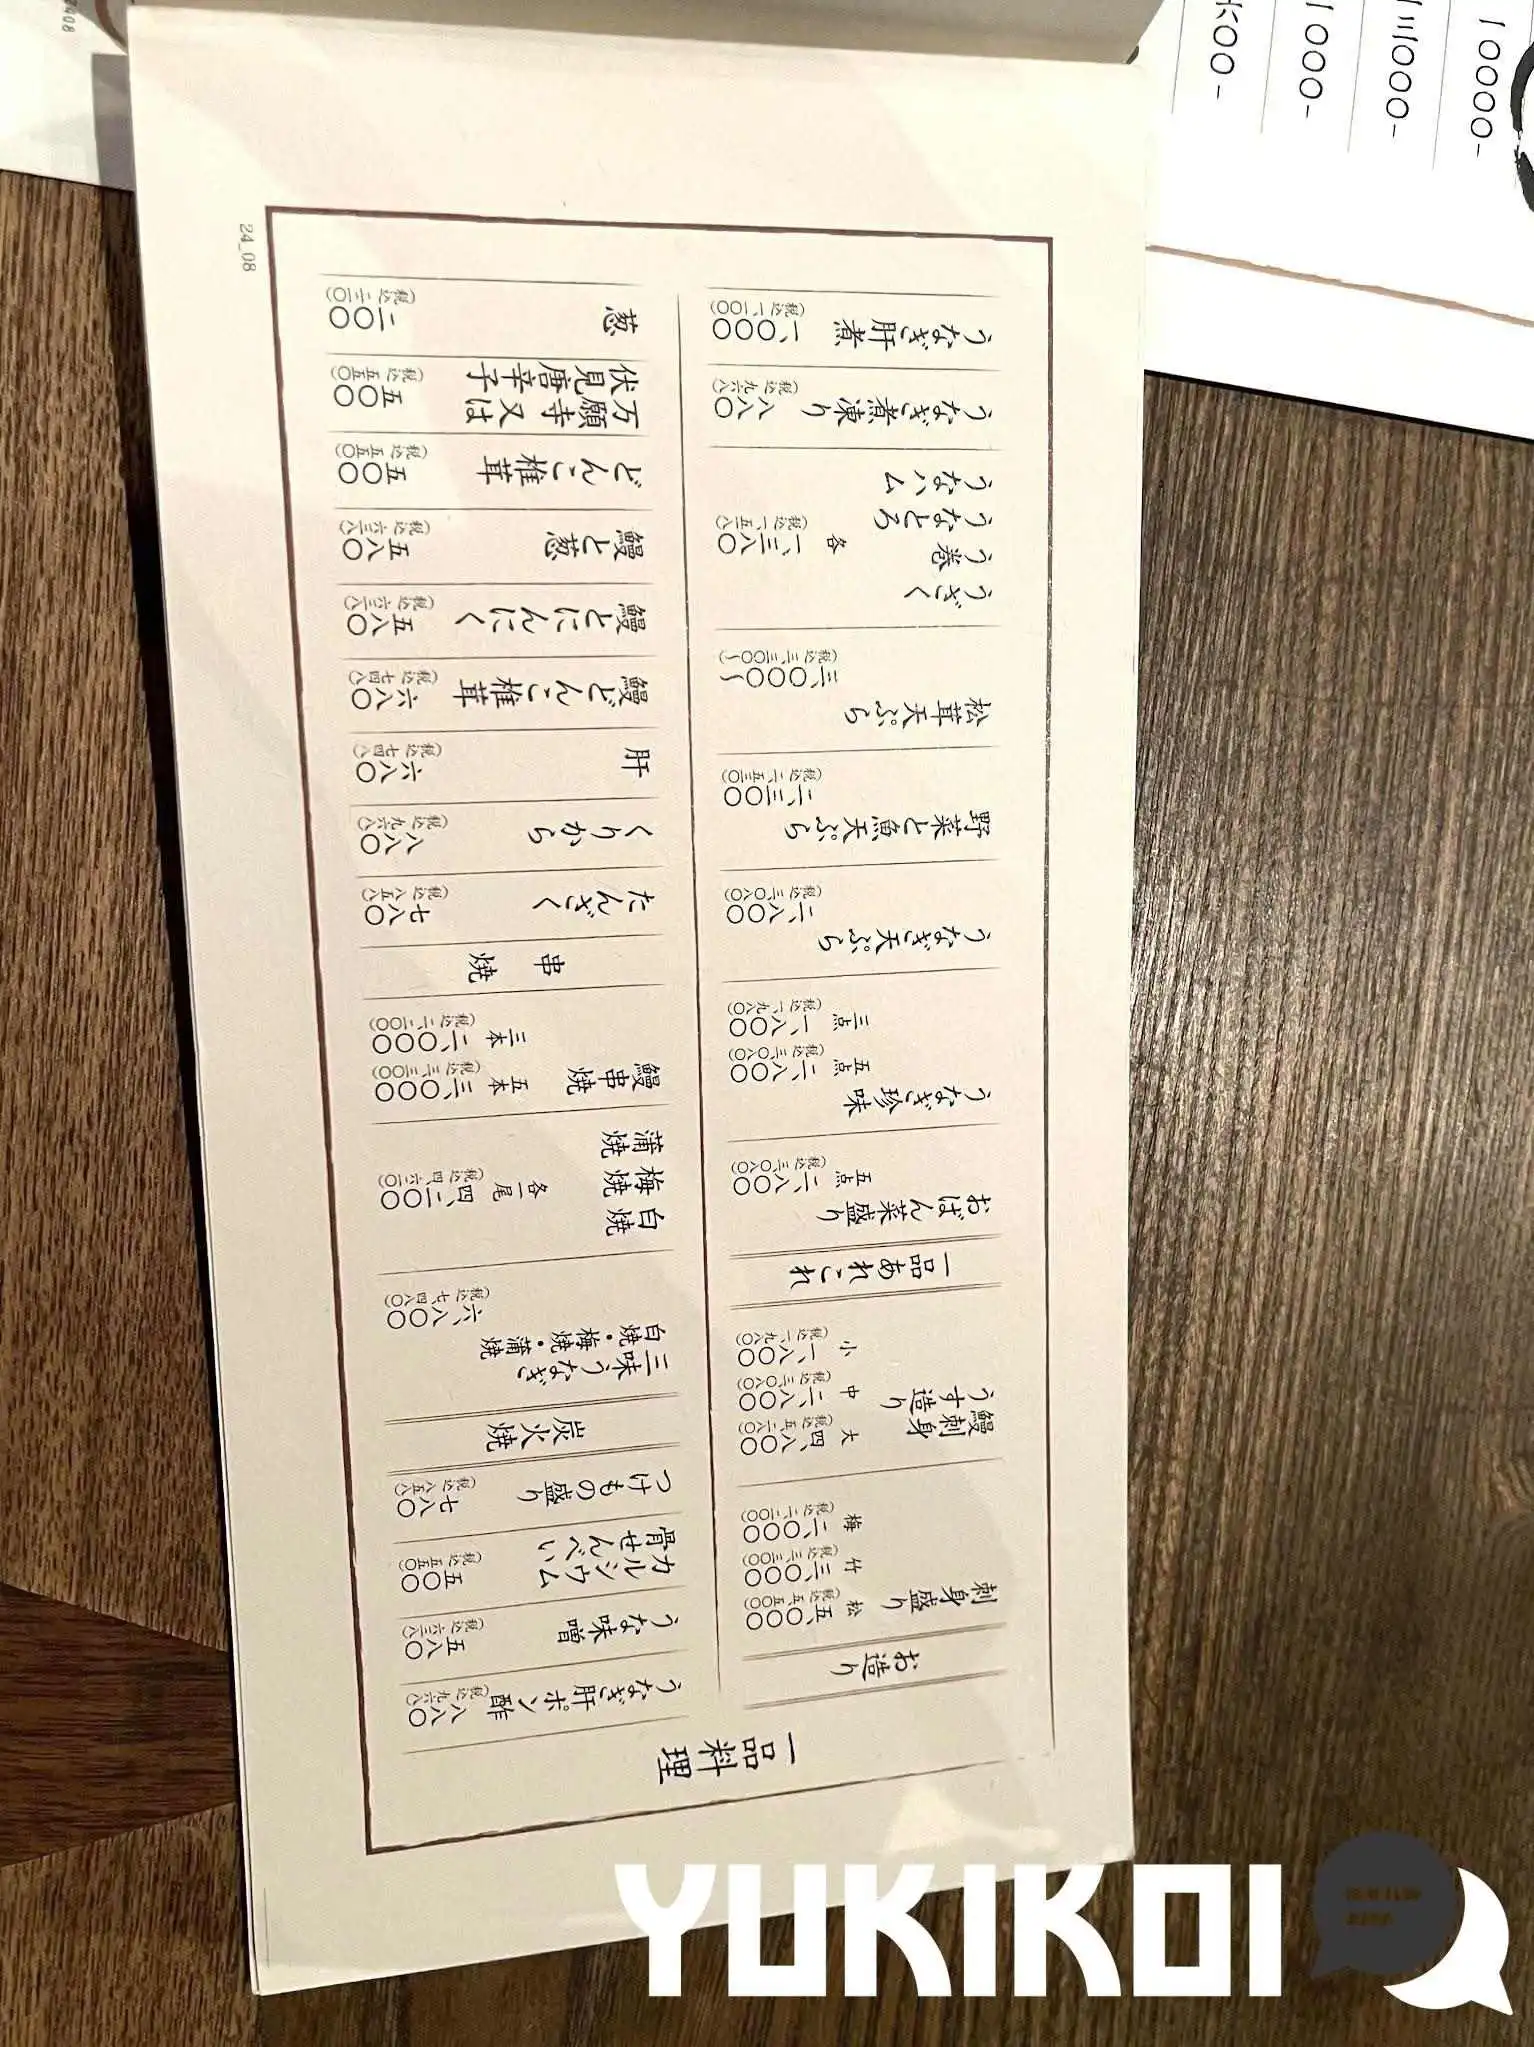 一品料理
お造り
刺身盛り 松 五、〇〇〇
(税込五、五〇〇)
竹 三、〇〇〇
(税込三、三〇〇)
梅 二、〇〇〇
(税込二、二〇〇)
鰻刺身
うす造り
大 四、八〇〇
(税込五、二八〇)
中 二、八〇〇
(税込三、〇八〇)
小 一、八〇〇
(税込一、九八〇)
一品あれこれ
おばん菜盛り
五点 二、八〇〇
(税込三、〇八〇)
うなぎ珍味
五点 二、八〇〇
(税込三、〇八〇)
三点 一、八〇〇
(税込一、九八〇)
うなぎ天ぷら
二、八〇〇
(税込三、〇八〇)
野菜と魚天ぷら
二、三〇〇
(税込二、五三〇)
松茸天ぷら
三、〇〇〇〜
(税込三、三〇〇〜)
うざく
う巻
うなとろ
うなハム
各 一、三八〇
(税込一、五一八)
うなぎ煮凍り 八八〇
(税込九六八)
うなぎ肝煮 一、〇〇〇
(税込一、一〇〇)
うなぎ肝ポン酢 八八〇
(税込九六八)
うな味噌 五八〇
(税込六三八)
カルシウム
骨せんべい
五〇〇
(税込五五〇)
つけもの盛り 七八〇
(税込八五八)
炭火焼
三味うなぎ
白焼・梅焼・蒲焼
六、八〇〇
(税込七、四八〇)
白焼
梅焼
蒲焼
各一尾 四、二〇〇
(税込四、六二〇)
鰻串焼 五本 三、〇〇〇
(税込三、三〇〇)
三本 二、〇〇〇
(税込二、二〇〇)
串焼
たんざく 七八〇
(税込八五八)
くりから 八八〇
(税込九六八)
肝 六八〇
(税込七四八)
鰻どんこ椎茸 六八〇
(税込七四八)
鰻とにんにく 五八〇
(税込六三八)
鰻と葱 五八〇
(税込六三八)
どんこ椎茸 五〇〇
(税込五五〇)
万願寺又は
伏見唐辛子
五〇〇
(税込五五〇)
葱 二〇〇
(税込二二〇)
24_08
YUKIKOI